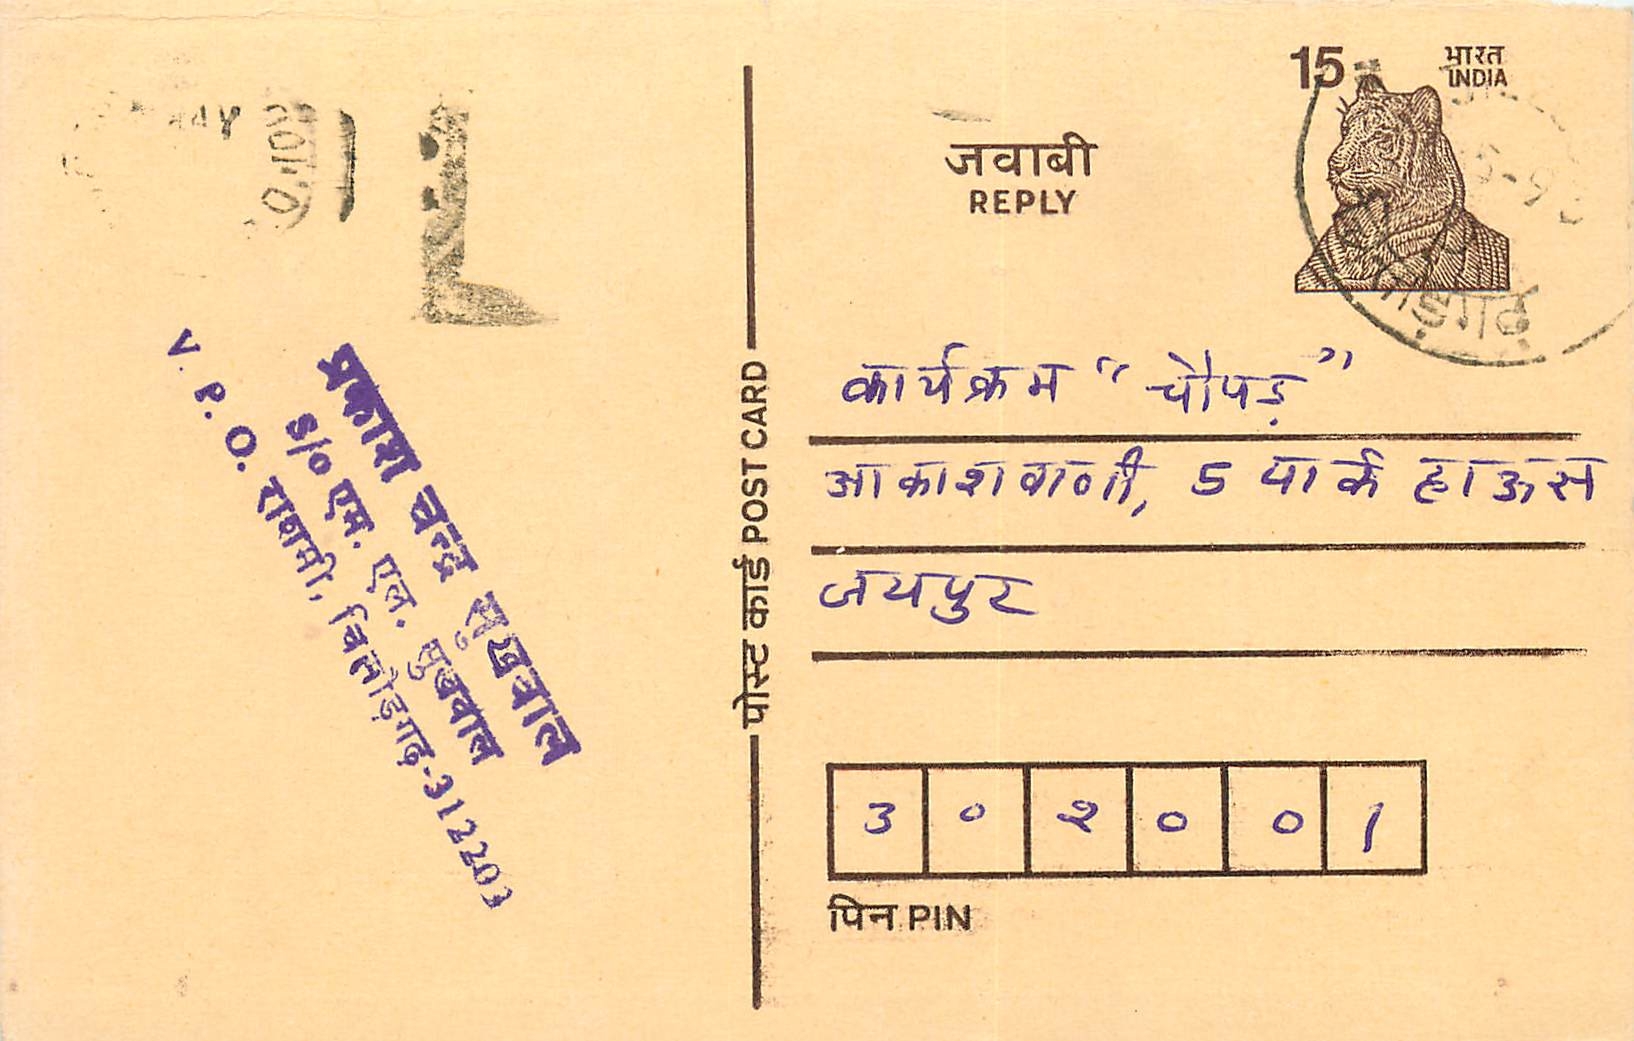 15
भारत
INDIA
जवाबी
REPLY
पोस्ट कार्ड POST CARD
कार्यक्रम "चौपड़"
आकाशवाणी, 5 पार्क हाऊस
जयपुर
3 0 2 0 0 1
पिन PIN
प्रकाश चन्द्र सुखवाल
S/o एम. एल. सुखवाल
V. P. O. राशमी, चित्तौड़गढ़-312203